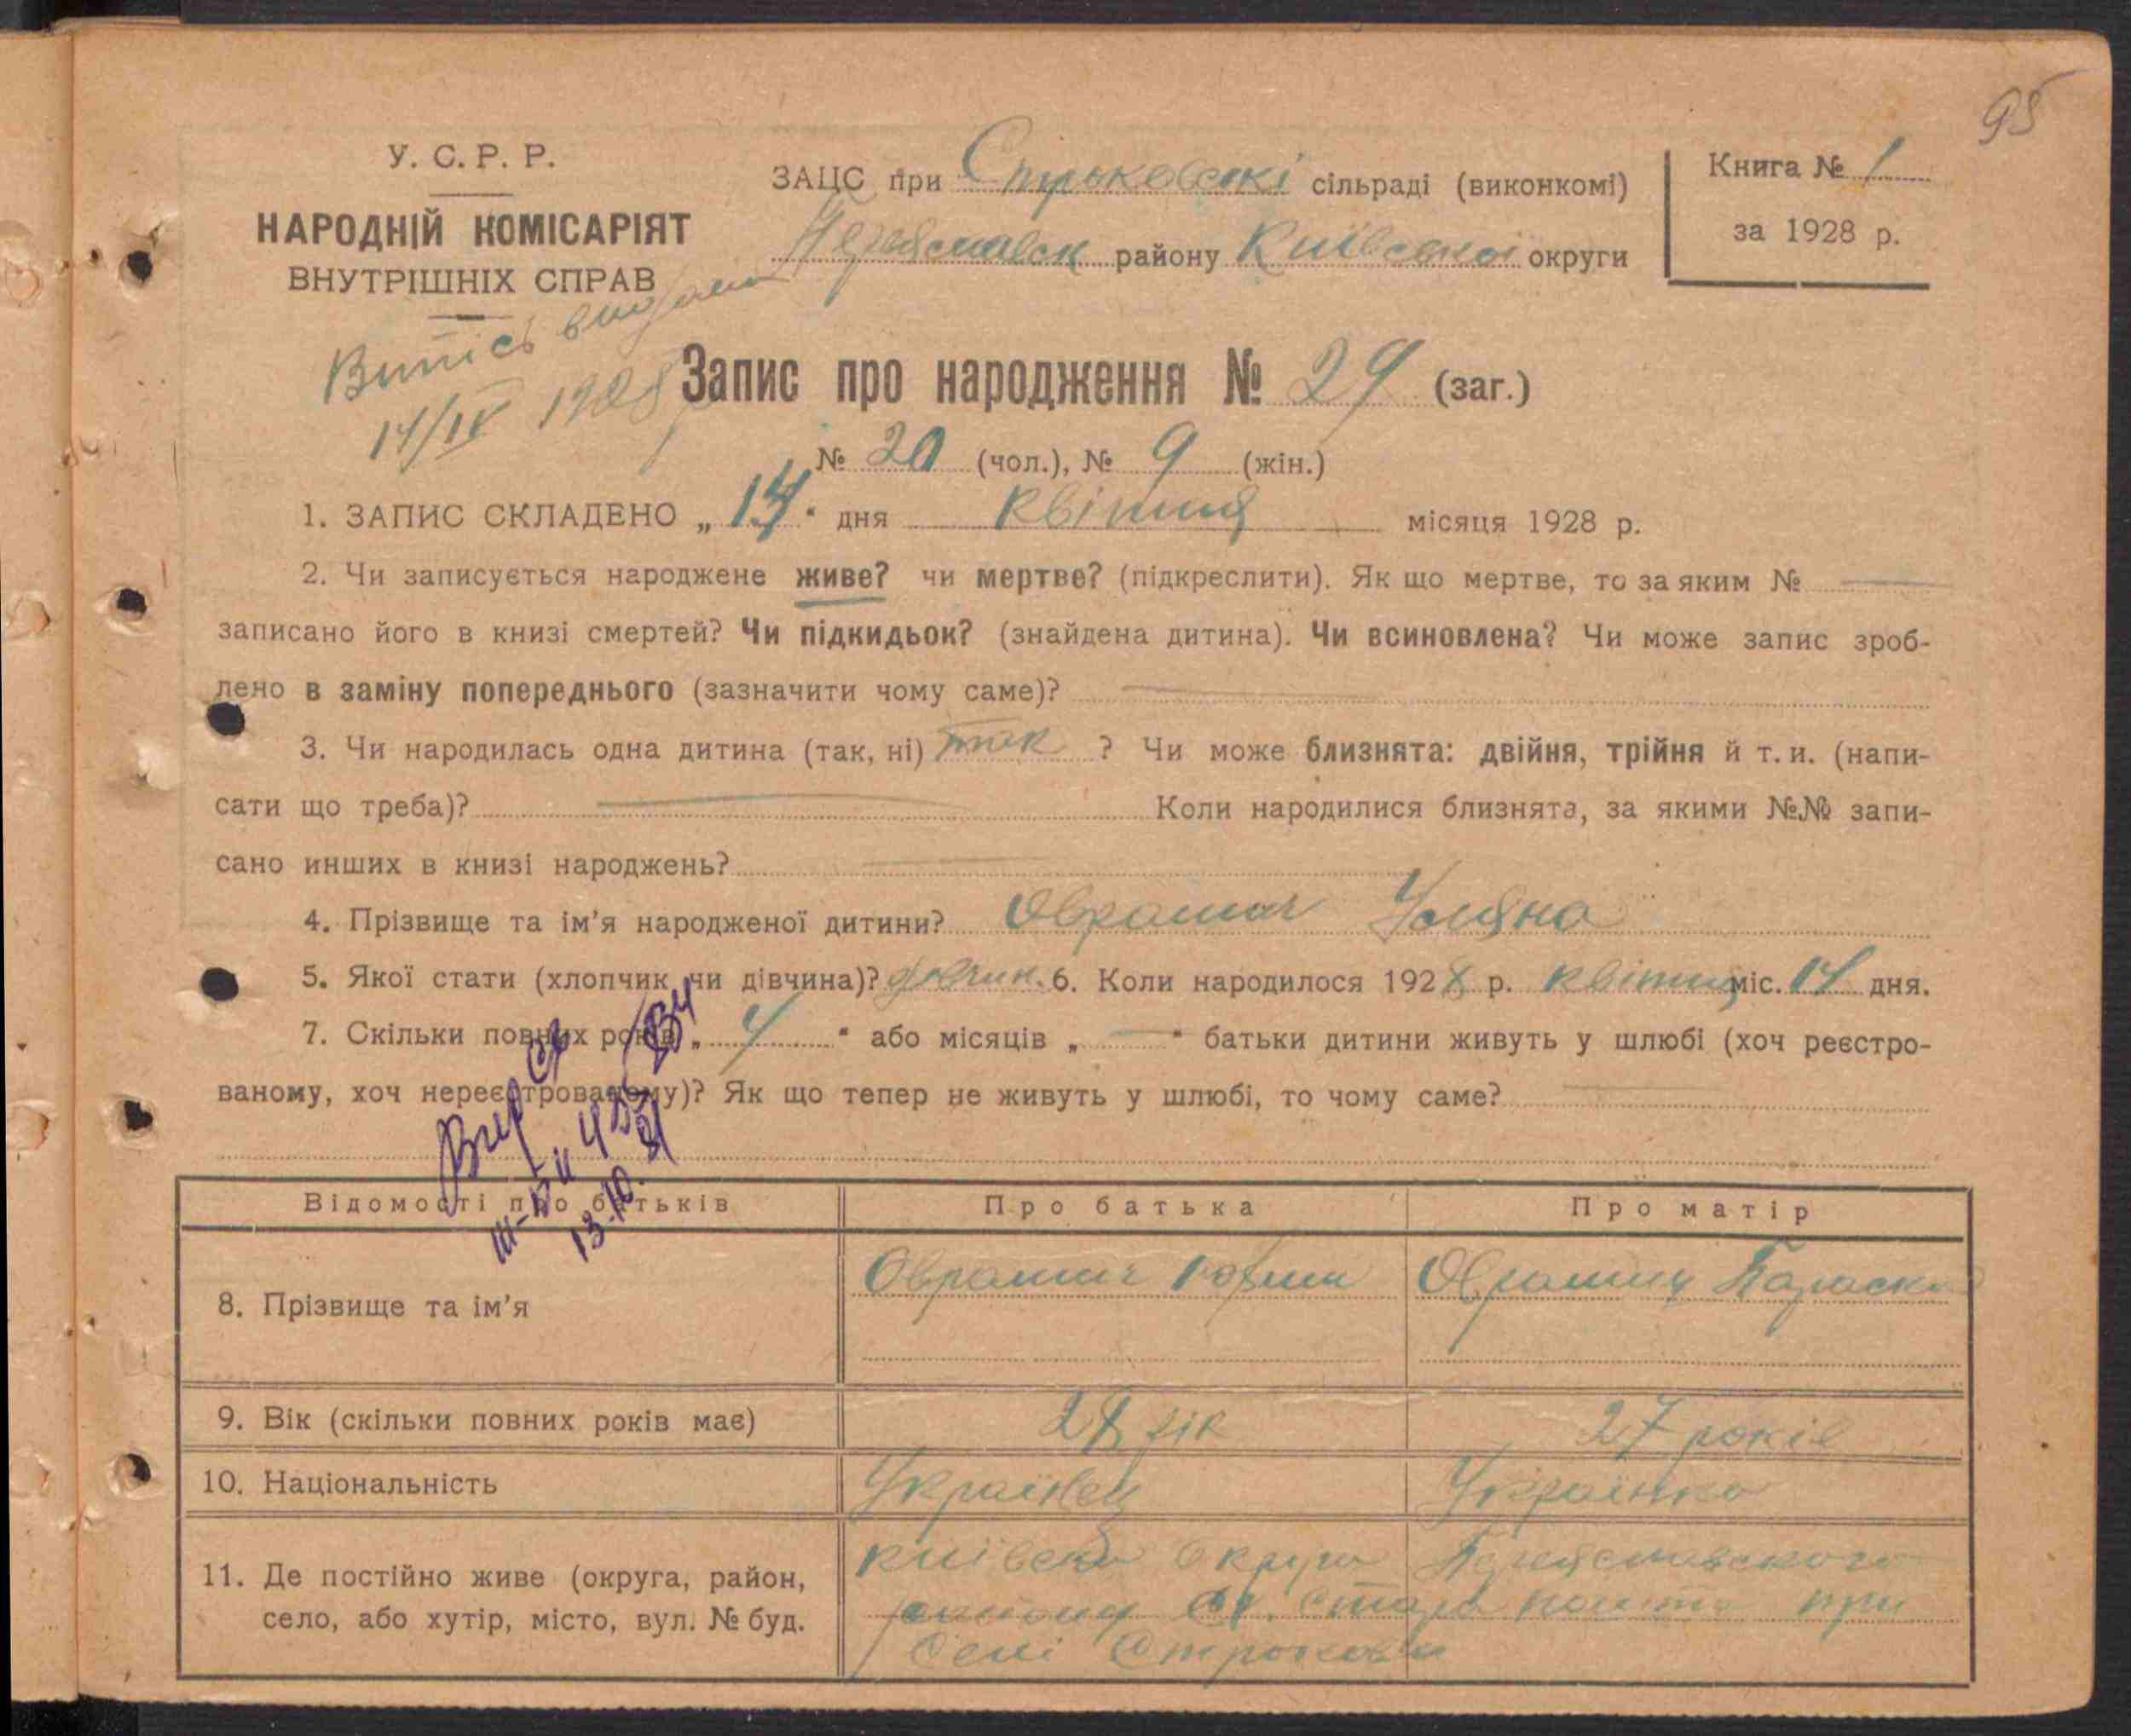 95
У. С. Р. Р.
НАРОДНІЙ КОМІСАРІЯТ
ВНУТРІШНІХ СПРАВ
ЗАЦС при сільраді (виконкомі)
району Київської округи
Книга № 1
за 1928 р.
Випісь видана
14/IV 1928 р
Запис про народження № 29 (заг.)
№ 20 (чол.), № 9 (жін.)
1. ЗАПИС СКЛАДЕНО „ 14 “ дня квітня місяця 1928 р.
2. Чи записується народжене живе? чи мертве? (підкреслити). Як що мертве, то за яким №
записано його в книзі смертей? Чи підкидьок? (знайдена дитина). Чи всиновлена? Чи може запис зроб-
лено в заміну попереднього (зазначити чому саме)?
3. Чи народилась одна дитина (так, ні) так ? Чи може близнята: двійня, трійня й т. и. (напи-
сати що треба)? Коли народилися близнята, за якими №№ запи-
сано инших в книзі народжень?
4. Прізвище та ім’я народженої дитини? Уляна
5. Якої стати (хлопчик чи дівчина)? 6. Коли народилося 1928 р. квітня міс. 14 дня.
7. Скільки повних років „ 4 “ або місяців „ — “ батьки дитини живуть у шлюбі (хоч реєстро-
ваному, хоч нереєстрованому)? Як що тепер не живуть у шлюбі, то чому саме?
Відомості про батьків Про батька Про матір
8. Прізвище та ім’я Параска
9. Вік (скільки повних років має) рік 27 років
10. Національність Українец Українка
11. Де постійно живе (округа, район,
село, або хутір, місто, вул. № буд.
Київська округа Переяславского
району Стара при
селі